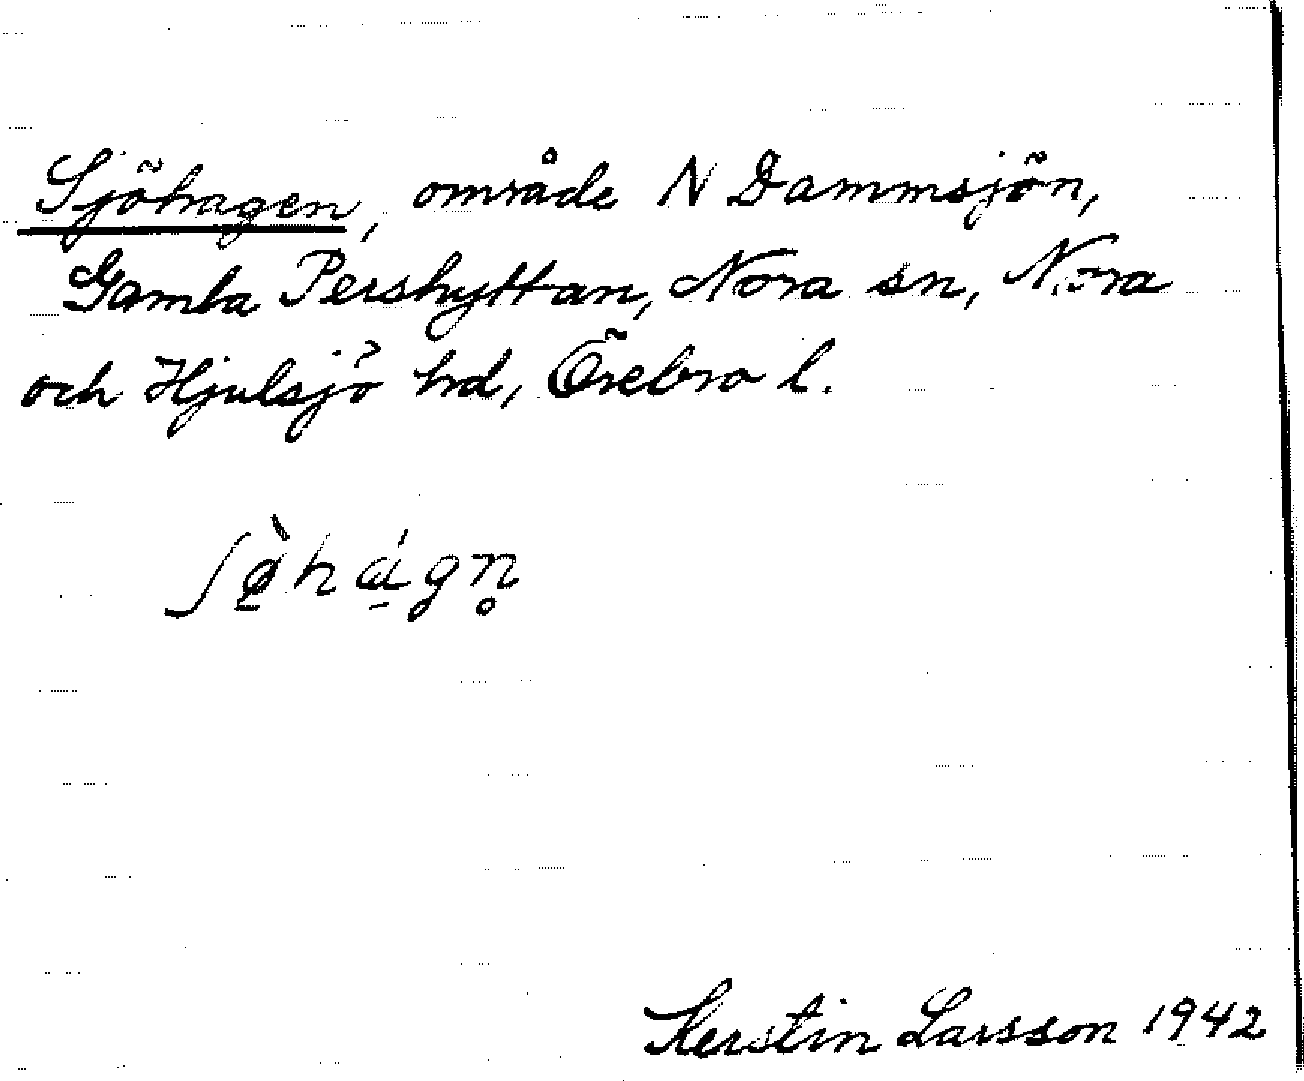 Sjöhagen, område N Dammsjön,
Gamla Pershyttan, Nora sn, Nora
och Hjulsjö hrd, Örebro l.
Kerstin Larsson 1942